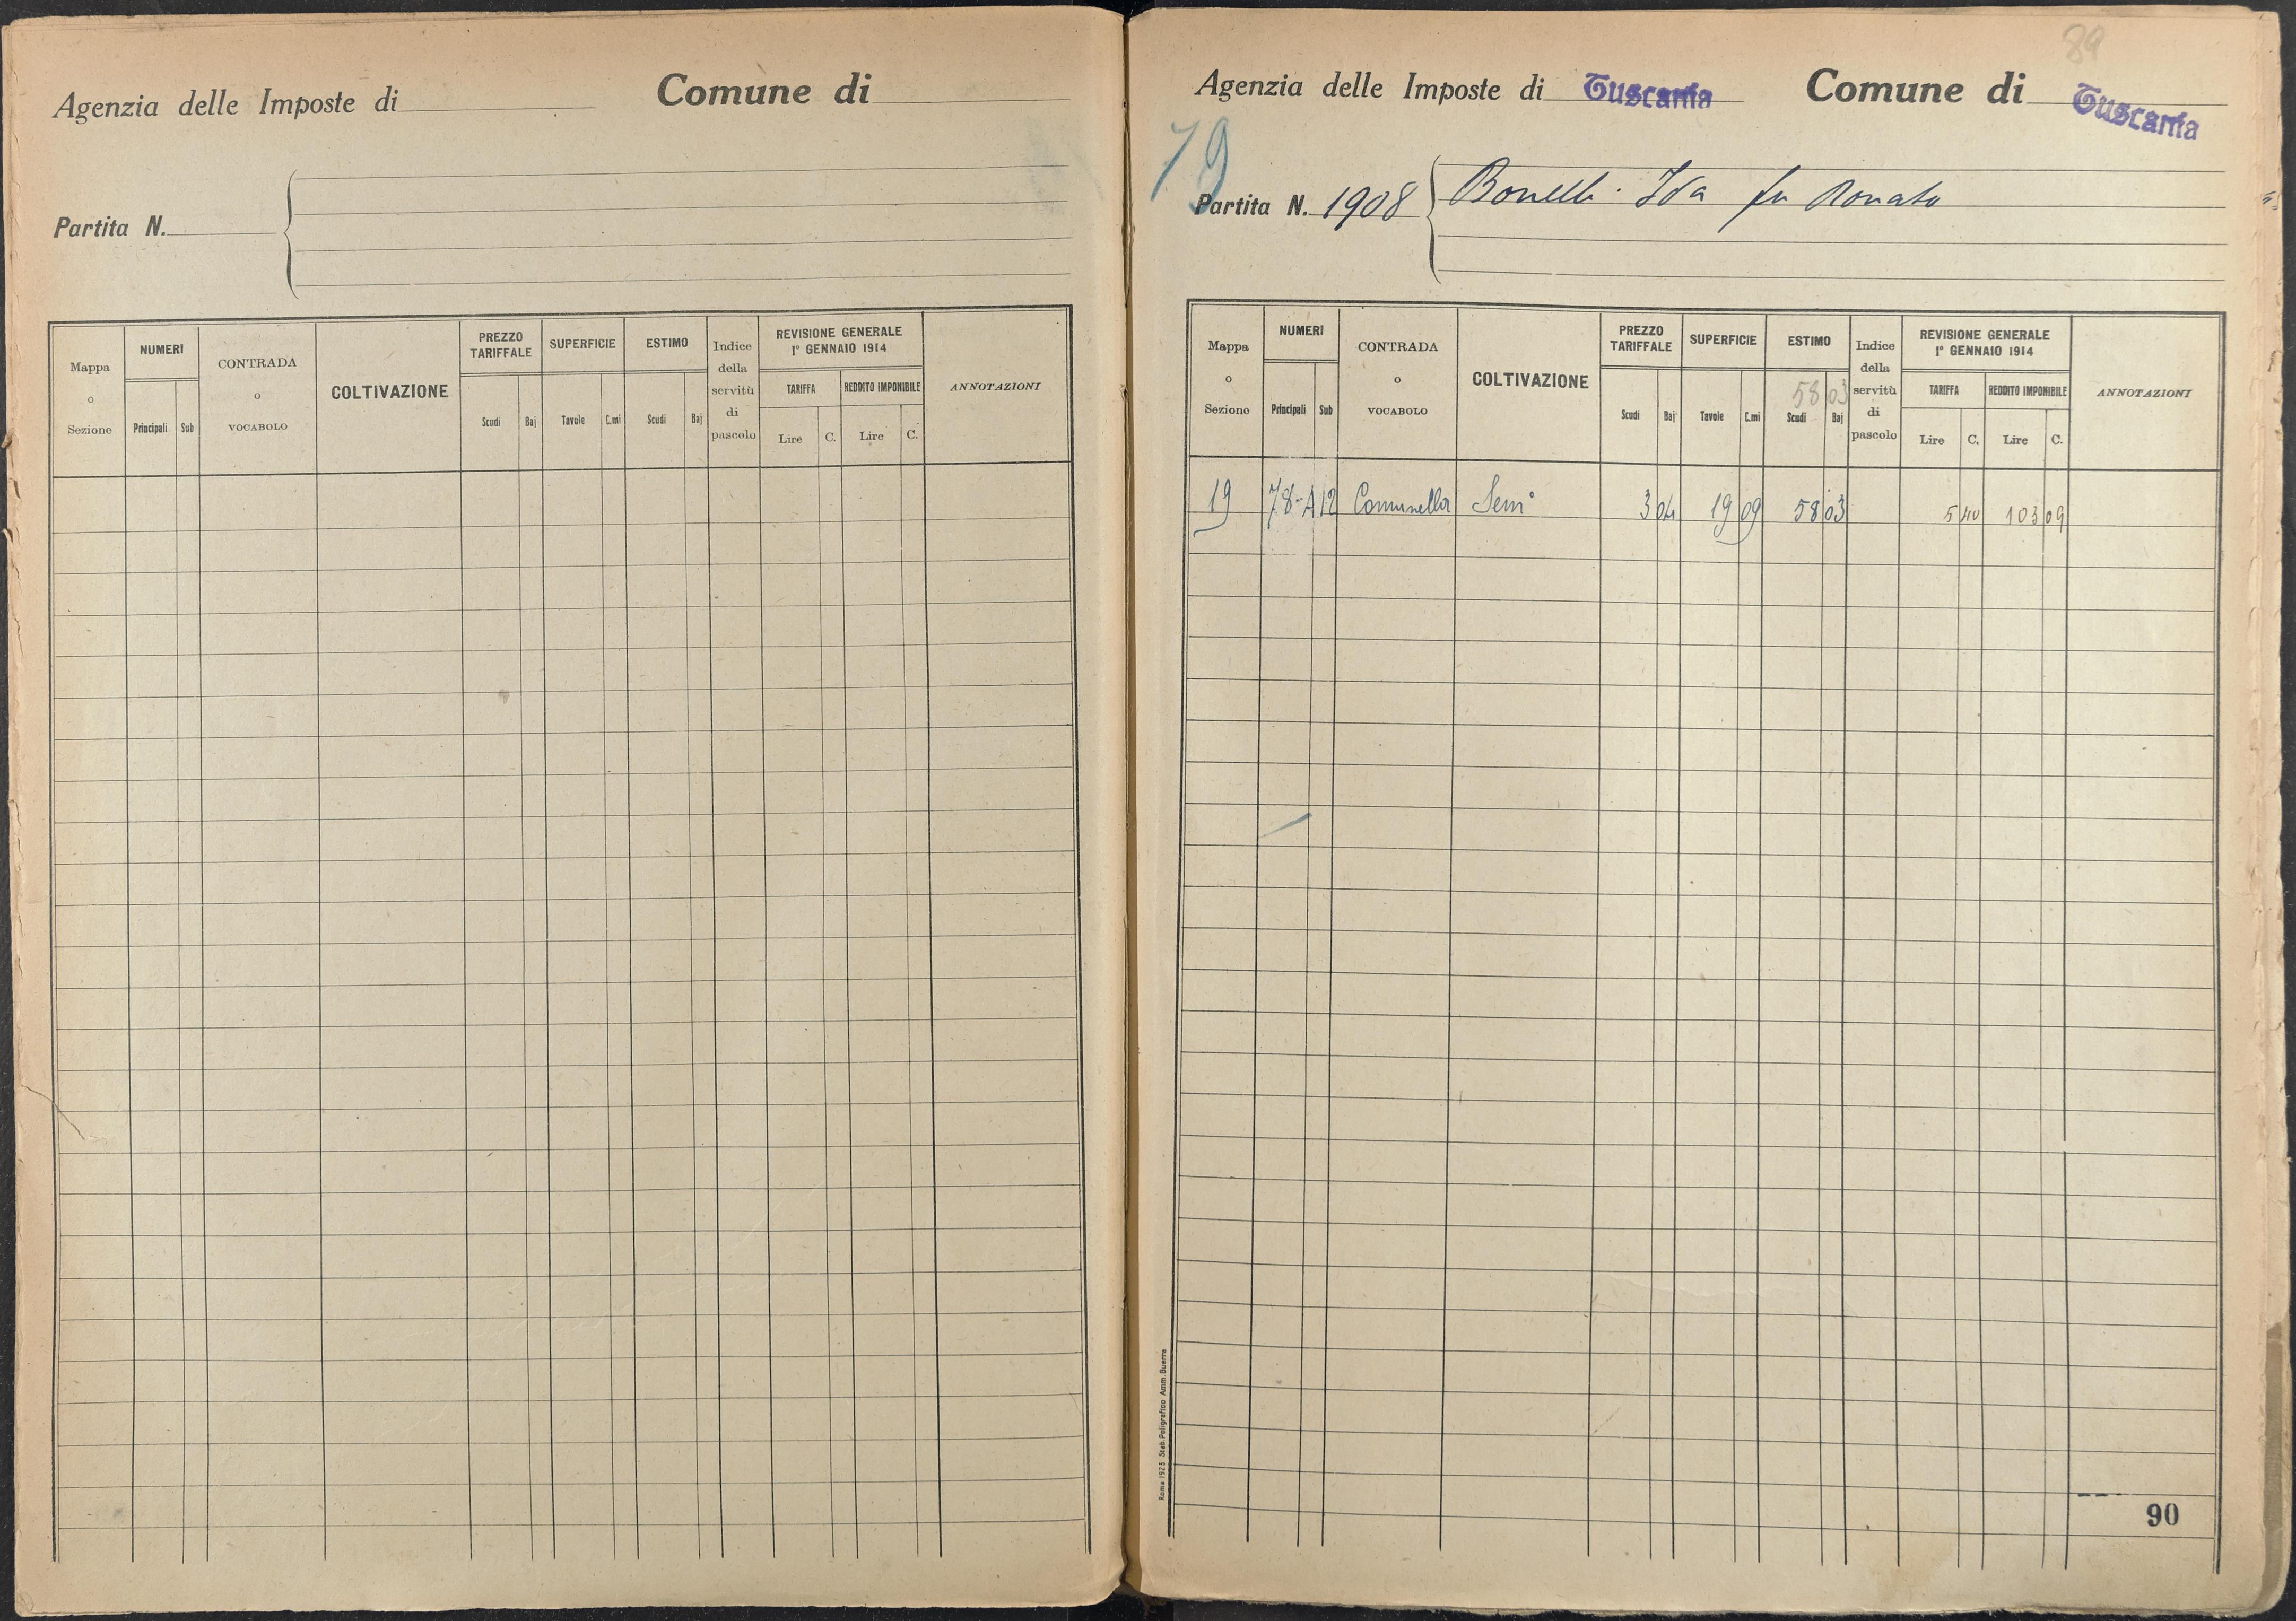 Agenzia delle Imposte di Comune di
Partita N.
Mappa o Sezione NUMERI Principali Sub CONTRADA o VOCABOLO COLTIVAZIONE PREZZO TARIFFALE Scudi Baj SUPERFICIE Tavole C.mi ESTIMO Scudi Baj Indice della servitù di pascolo REVISIONE GENERALE 1° GENNAIO 1914 TARIFFA Lire C. REDDITO IMPONIBILE Lire C. ANNOTAZIONI
89
Agenzia delle Imposte di Tuscania Comune di Tuscania
79
Partita N. 1908 Bonelli Ida fu Donato
Mappa o Sezione NUMERI Principali Sub CONTRADA o VOCABOLO COLTIVAZIONE PREZZO TARIFFALE Scudi Baj SUPERFICIE Tavole C.mi ESTIMO 58 03 Scudi Baj Indice della servitù di pascolo REVISIONE GENERALE 1° GENNAIO 1914 TARIFFA Lire C. REDDITO IMPONIBILE Lire C. ANNOTAZIONI
19 78-A 12 Comunella Sem° 3 04 19 09 58 03 5 40 103 09
Roma 1923 Stab. Poligrafico Amm. Guerra
90